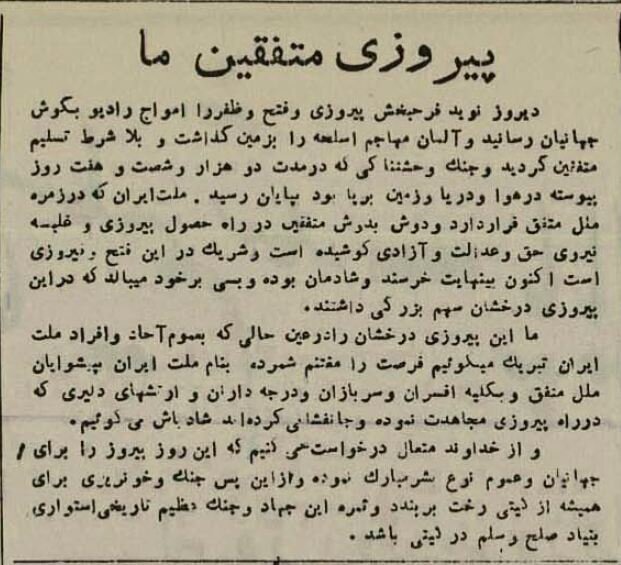 پیروزی متفقین ما
دیروز نوید فرحبخش پیروزی وفتح وظفررا امواج رادیو بگوش
جهانیان رسانید وآلمان مهاجم اسلحه را بزمین گذاشت و بلا شرط تسلیم
متفقین گردید وجنك وحشتناکی که درمدت دو هزار وشصت و هفت روز
پیوسته درهوا ودریا وزمین برپا بود بپایان رسید . ملت ایران که درزمره
ملل متفق قراردارد ودوش بدوش متفقین در راه حصول پیروزی و غلبه
نیروی حق وعدالت وآزادی کوشیده است وشریك در این فتح وفیروزی
است اکنون بینهایت خرسند وشادمان بوده وبسی برخود میبالد که دراین
پیروزی درخشان سهم بزرگی داشتند.
ما این پیروزی درخشان رادرعین حالی که بعموم آحاد وافراد ملت
ایران تبریك میگوئیم فرصت را مغتنم شمرده بنام ملت ایران بپیشوایان
ملل متفق وبکلیه افسران وسربازان ودرجه داران و ارتشهای دلیری که
درراه پیروزی مجاهدت نموده وجانفشانی کرده‌اند شادباش می گوئیم.
و از خداوند متعال درخواست می کنیم که این روز پیروز را برای
جهانیان وعموم نوع بشرمبارك نموده وازاین پس جنك وخونریزی برای
همیشه از گیتی رخت بربندد وثمره این جهاد وجنك عظیم تاریخی استواری
بنیاد صلح وسلم در گیتی باشد .